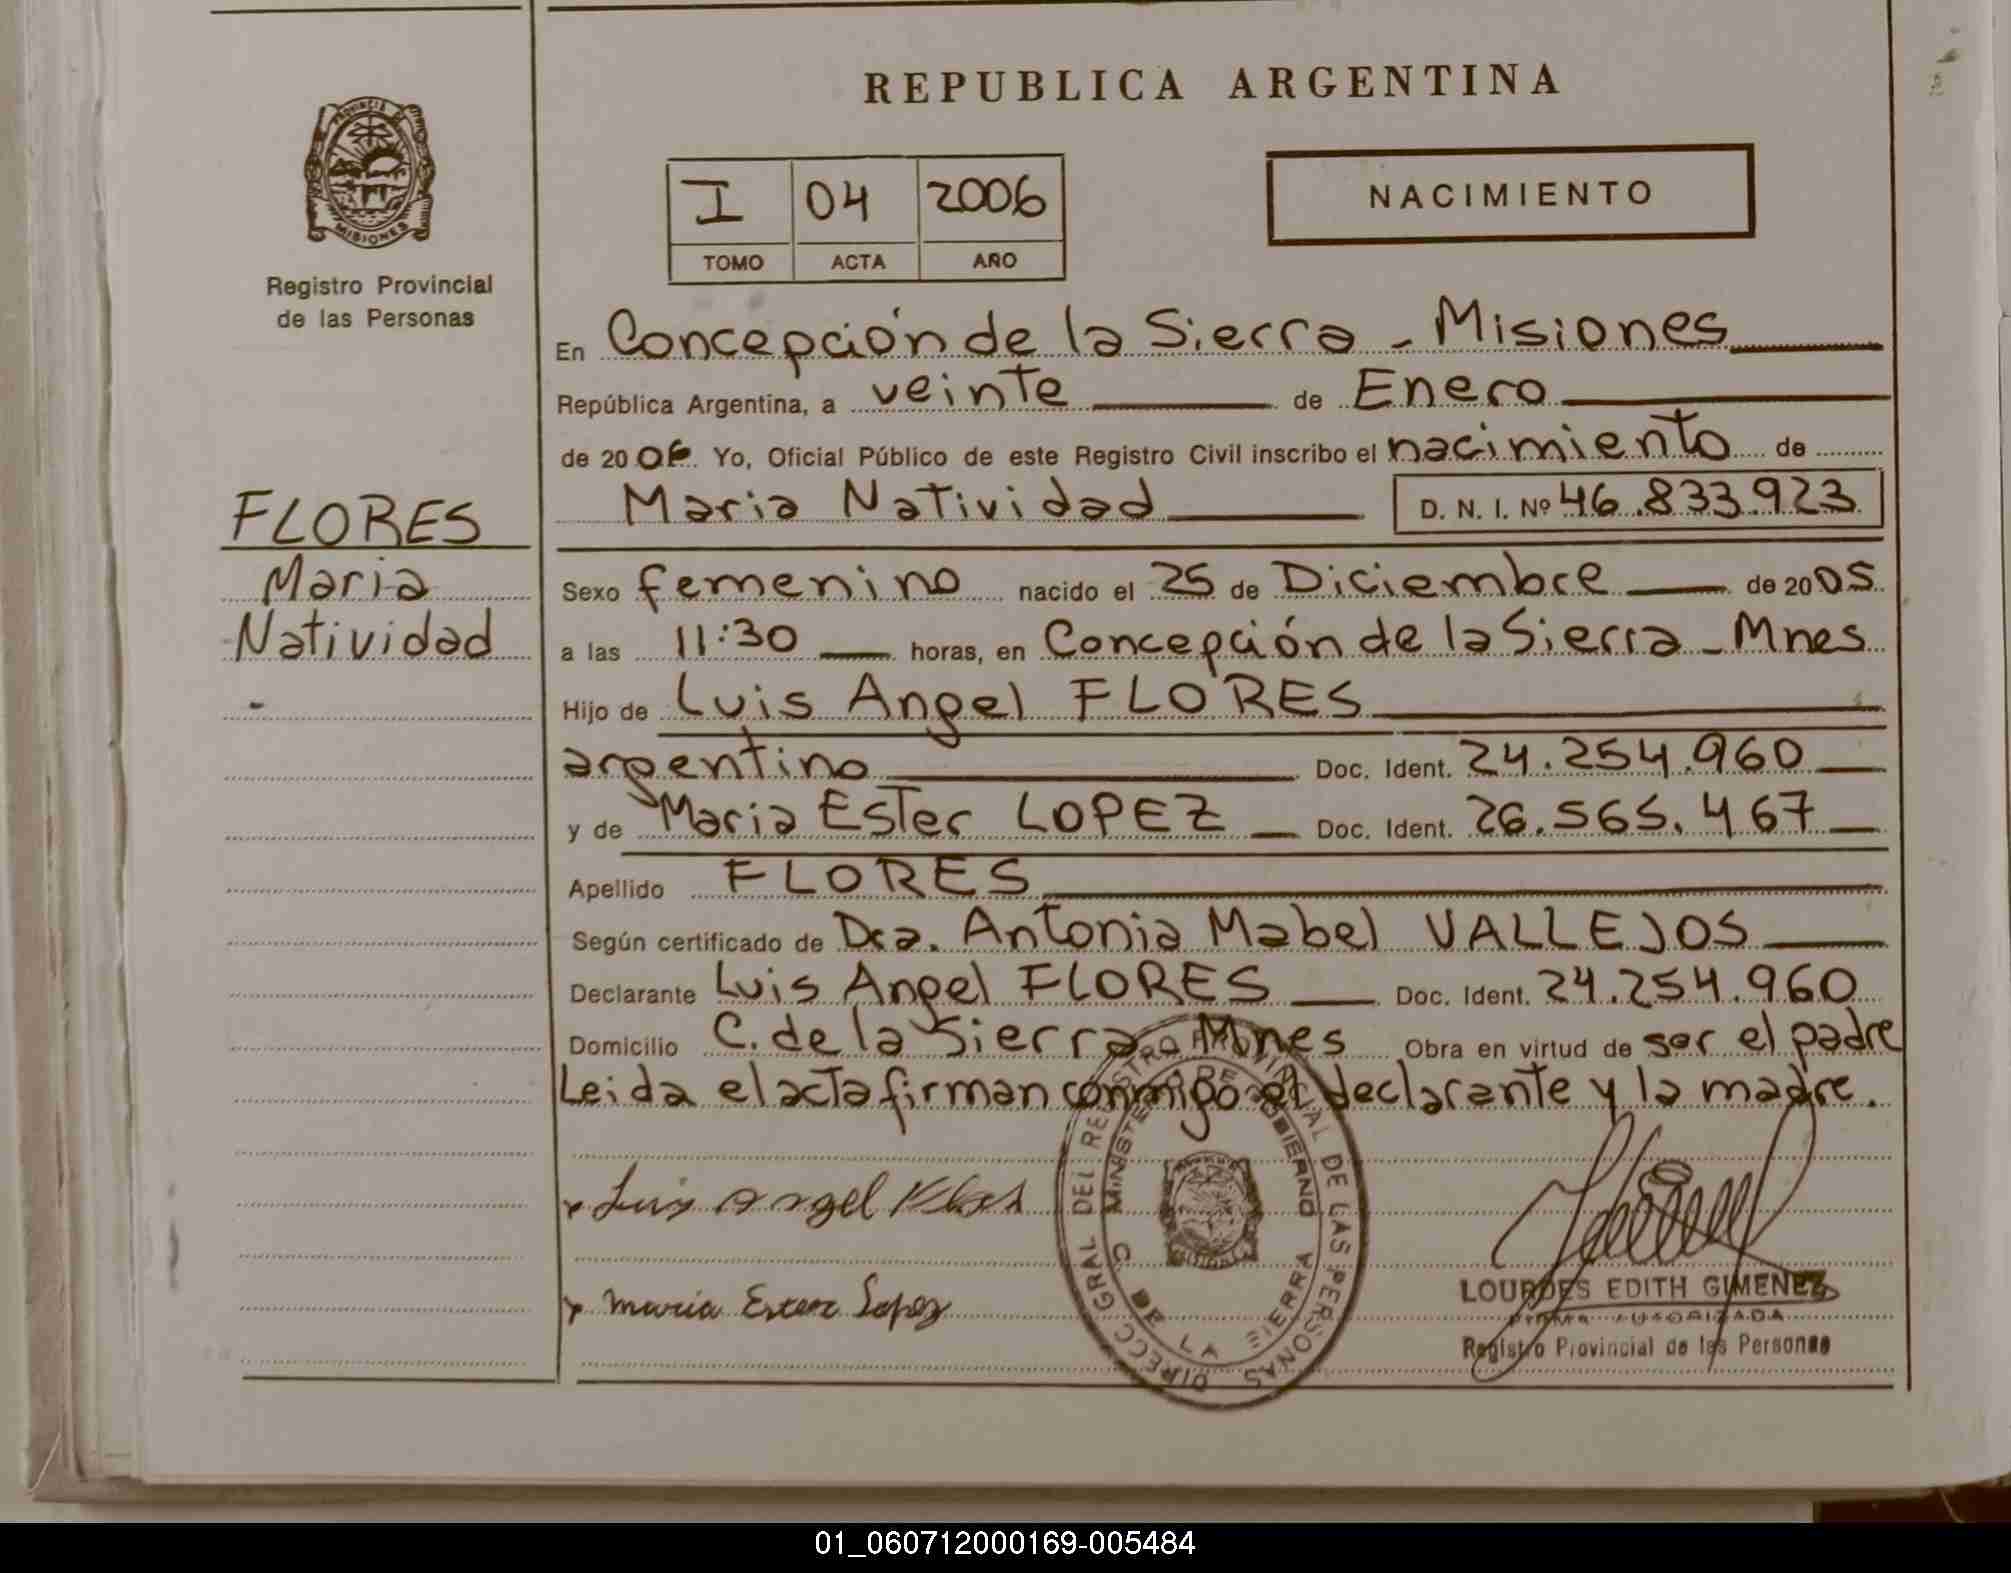 REPUBLICA ARGENTINA
PROVINCIA DE
MISIONES
Registro Provincial
de las Personas
I 04 2006
TOMO ACTA AÑO
NACIMIENTO
En Concepción de la Sierra - Misiones
República Argentina, a veinte de Enero
de 2006 Yo, Oficial Público de este Registro Civil inscribo el nacimiento de
Maria Natividad D. N. I. Nº 46.833.923
FLORES
Maria
Natividad
-
Sexo femenino nacido el 25 de Diciembre de 2005
a las 11:30 horas, en Concepción de la Sierra - Mnes
Hijo de Luis Angel FLORES
argentino Doc. Ident. 24.254.960
y de Maria Ester LOPEZ Doc. Ident. 26.565.467
Apellido FLORES
Según certificado de Dra. Antonia Mabel VALLEJOS
Declarante Luis Angel FLORES Doc. Ident. 24.254.960
Domicilio C. de la Sierra Mnes Obra en virtud de ser el padre
Leida el acta firman conmigo el declarante y la madre.
DIRECC GRAL DEL REGISTRO PROVINCIAL DE LAS PERSONAS
MINISTERIO DE GOBIERNO
C DE LA SIERRA
x Luis Angel
x Maria Ester Lopez
LOURDES EDITH GIMENEZ
FIRMA AUTORIZADA
Registro Provincial de las Personas
01_060712000169-005484